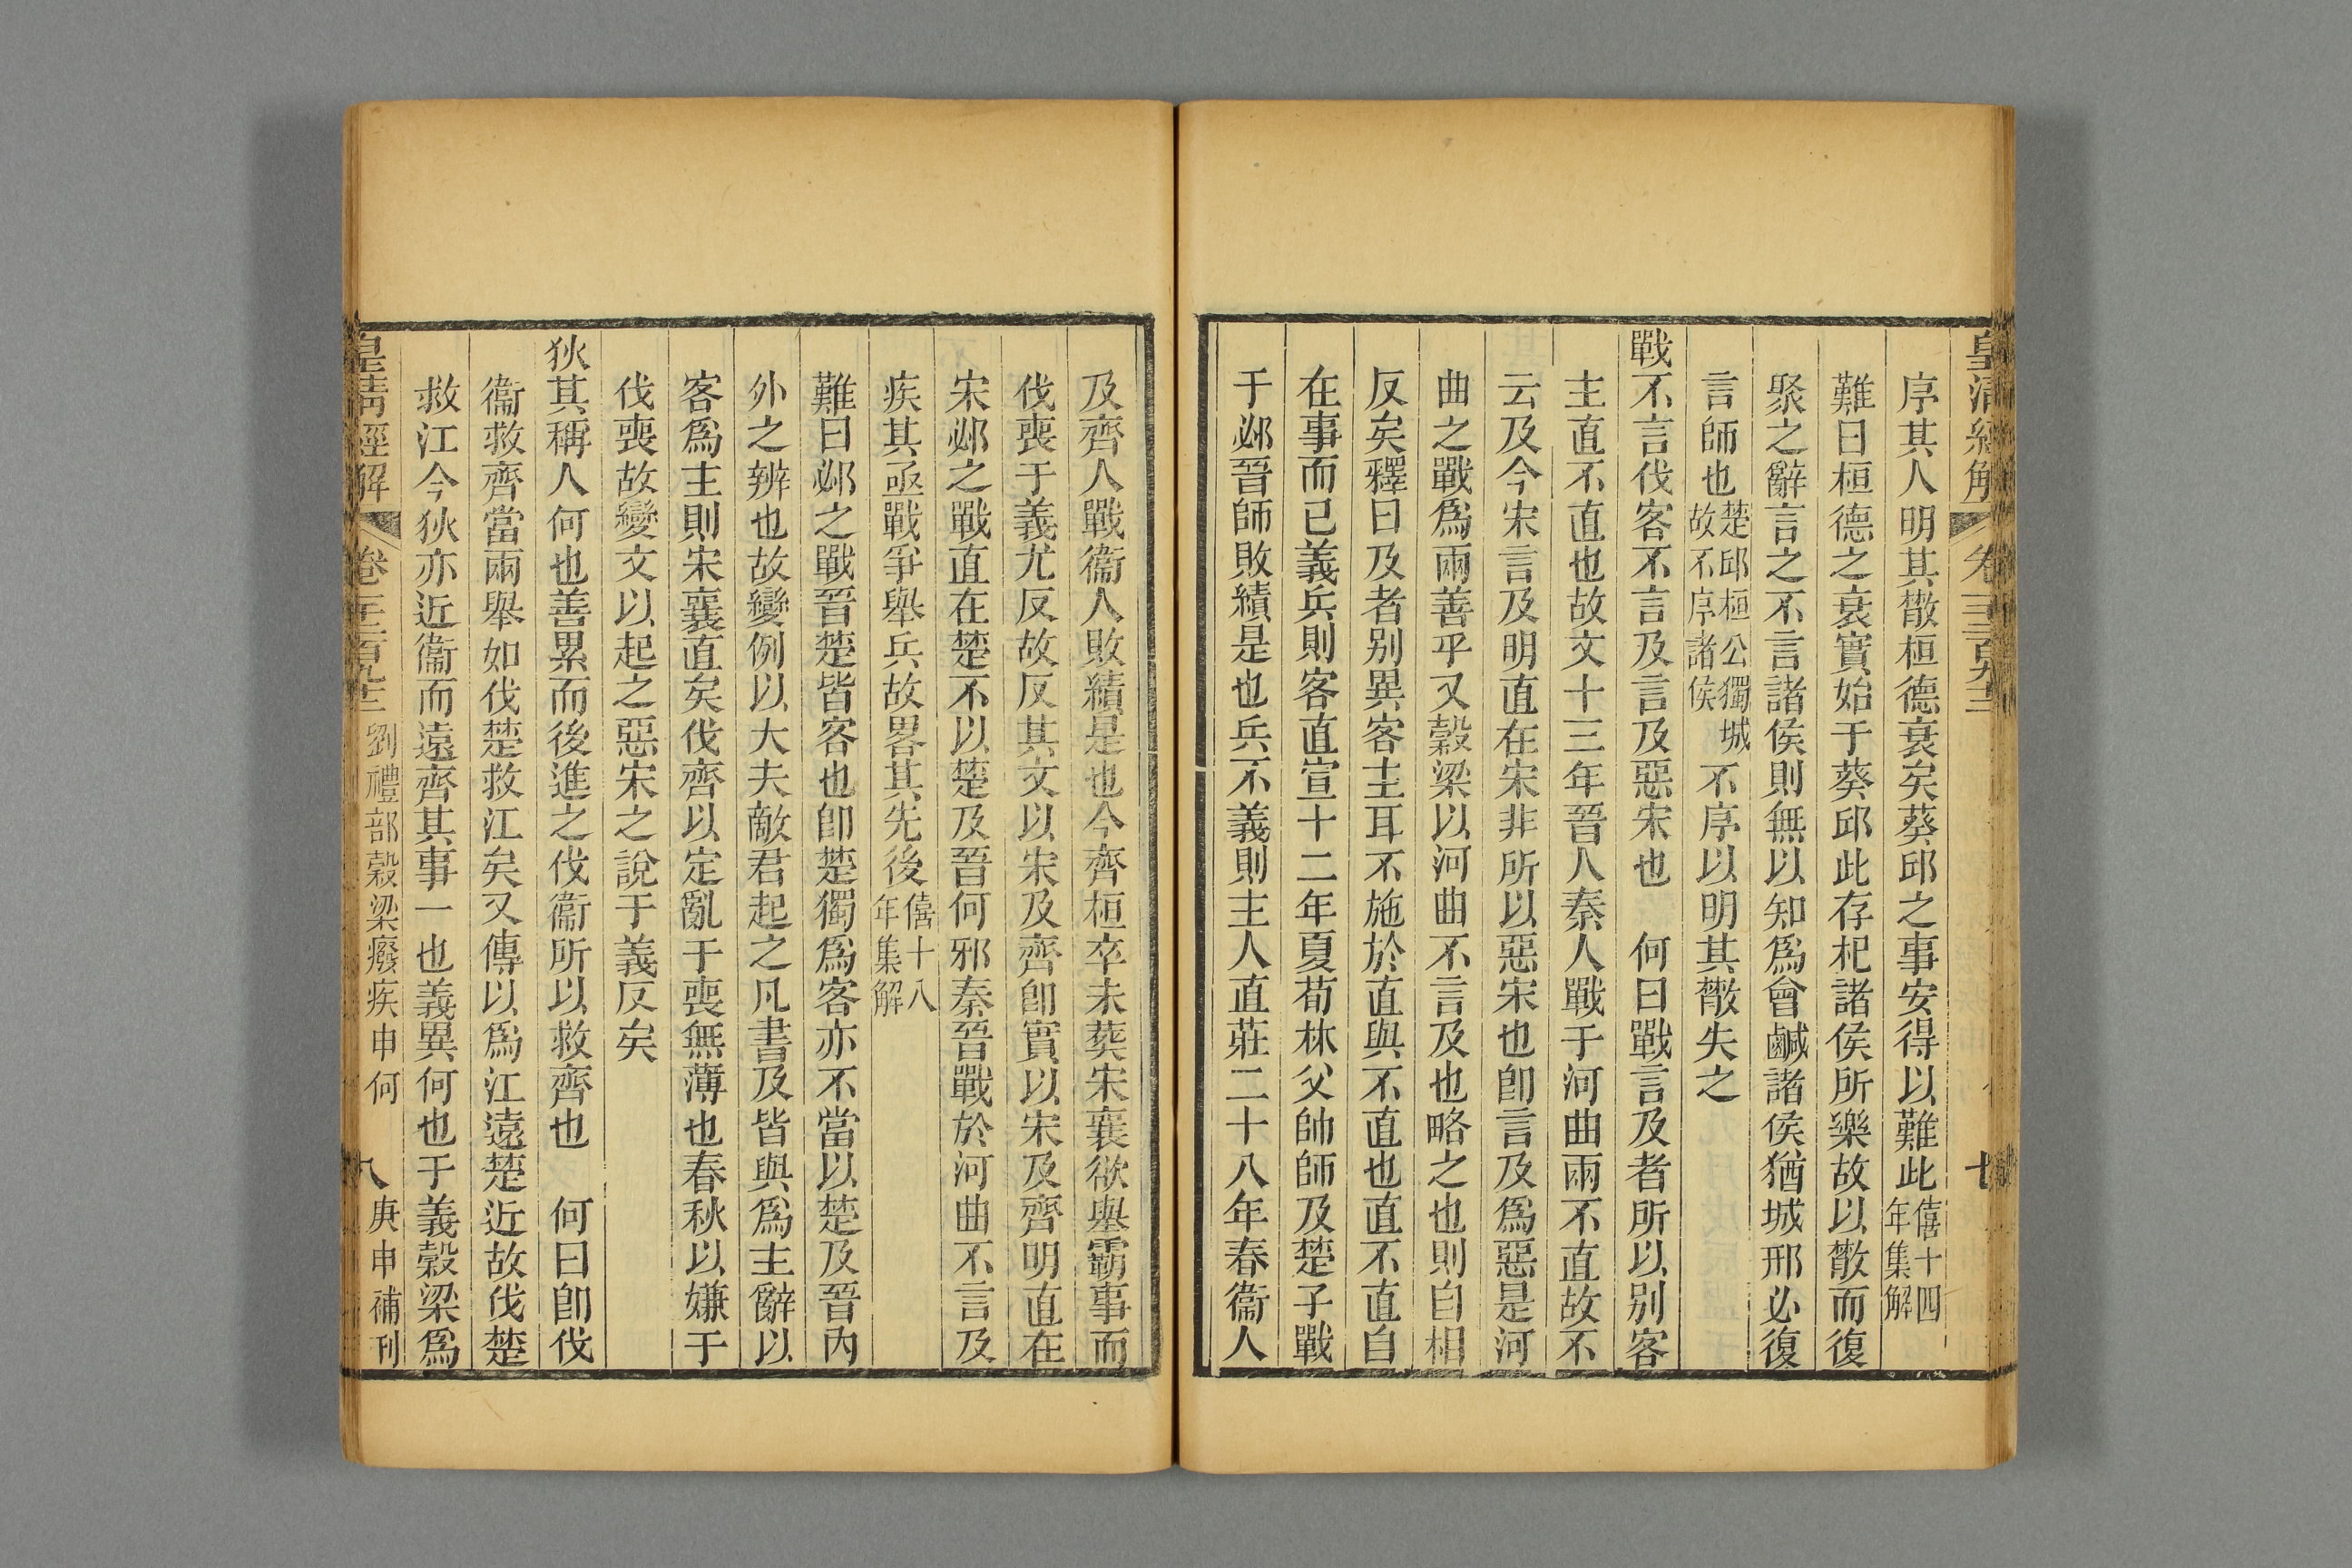 皇清經解
序其人明其散桓德衰矣葵邱之事安得以難此僖十四年集解
難曰桓德之衰實始于葵邱此存杞諸侯所樂故以散而復
聚之辭言之不言諸侯則無以知爲會鹹諸侯猶城邢必復
言師也楚邱桓公獨城故不序諸侯不序以明其散失之
戰不言伐客不言及言及惡宋也　何曰戰言及者所以別客
主直不直也故文十三年晉人秦人戰于河曲兩不直故不
云及今宋言及明直在宋非所以惡宋也卽言及爲惡是河
曲之戰爲兩善乎又穀梁以河曲不言及也略之也則自相
反矣釋曰及者別異客主耳不施於直與不直也直不直自
在事而已義兵則客直宣十二年夏荀林父帥師及楚子戰
于邲晉師敗績是也兵不義則主人直莊二十八年春衞人
及齊人戰衞人敗績是也今齊桓卒未葬宋襄欲舉霸事而
伐喪于義尤反故反其文以宋及齊卽實以宋及齊明直在
宋邲之戰直在楚不以楚及晉何邪秦晉戰於河曲不言及
疾其亟戰爭舉兵故畧其先後僖十八年集解
難曰邲之戰晉楚皆客也卽楚獨爲客亦不當以楚及晉內
外之辨也故變例以大夫敵君起之凡書及皆與爲主辭以
客爲主則宋襄直矣伐齊以定亂于喪無薄也春秋以嫌于
伐喪故變文以起之惡宋之說于義反矣
狄其稱人何也善累而後進之伐衞所以救齊也　何曰卽伐
衞救齊當兩舉如伐楚救江矣又傳以爲江遠楚近故伐楚
救江今狄亦近衞而遠齊其事一也義異何也于義穀梁爲
皇淸經解　劉禮部穀梁癈疾申何　八　庚申補刊